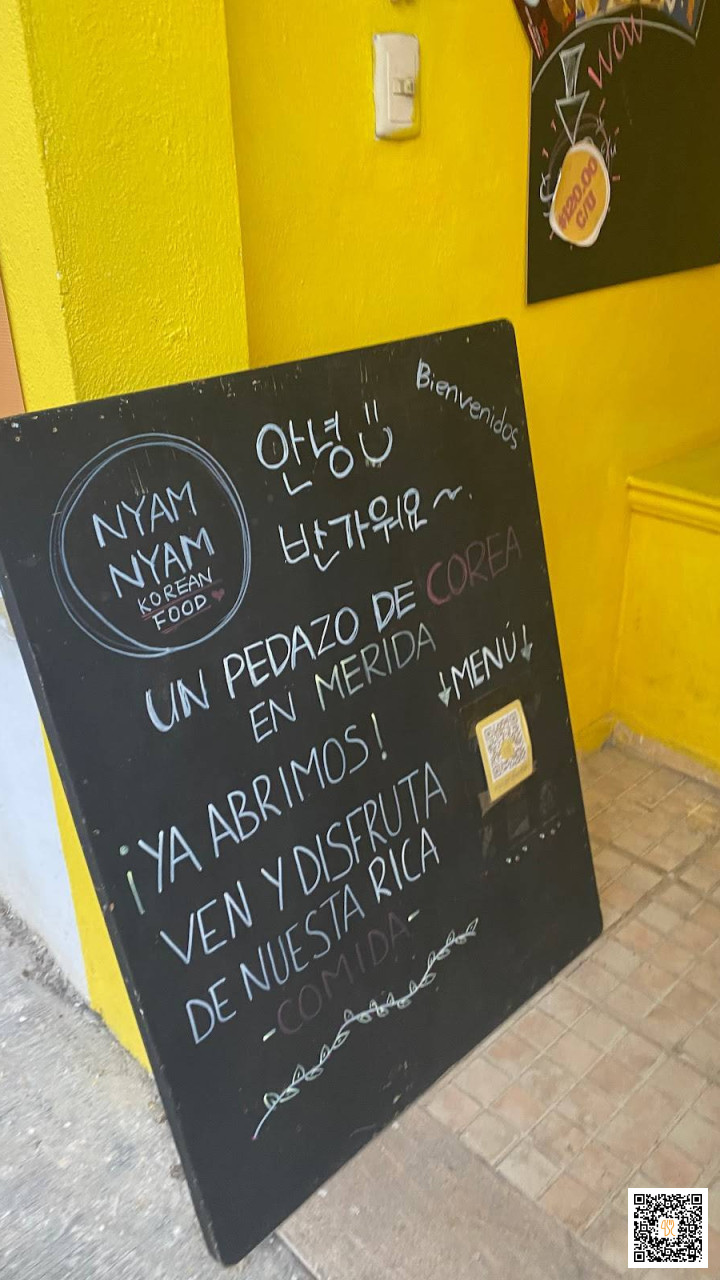 WOW
$120.00
C/U
Bienvenidos
안녕
반가워요~
NYAM
NYAM
KOREAN
FOOD
UN PEDAZO DE COREA
EN MERIDA
MENÚ
¡YA ABRIMOS!
VEN Y DISFRUTA
DE NUESTA RICA
-COMIDA-